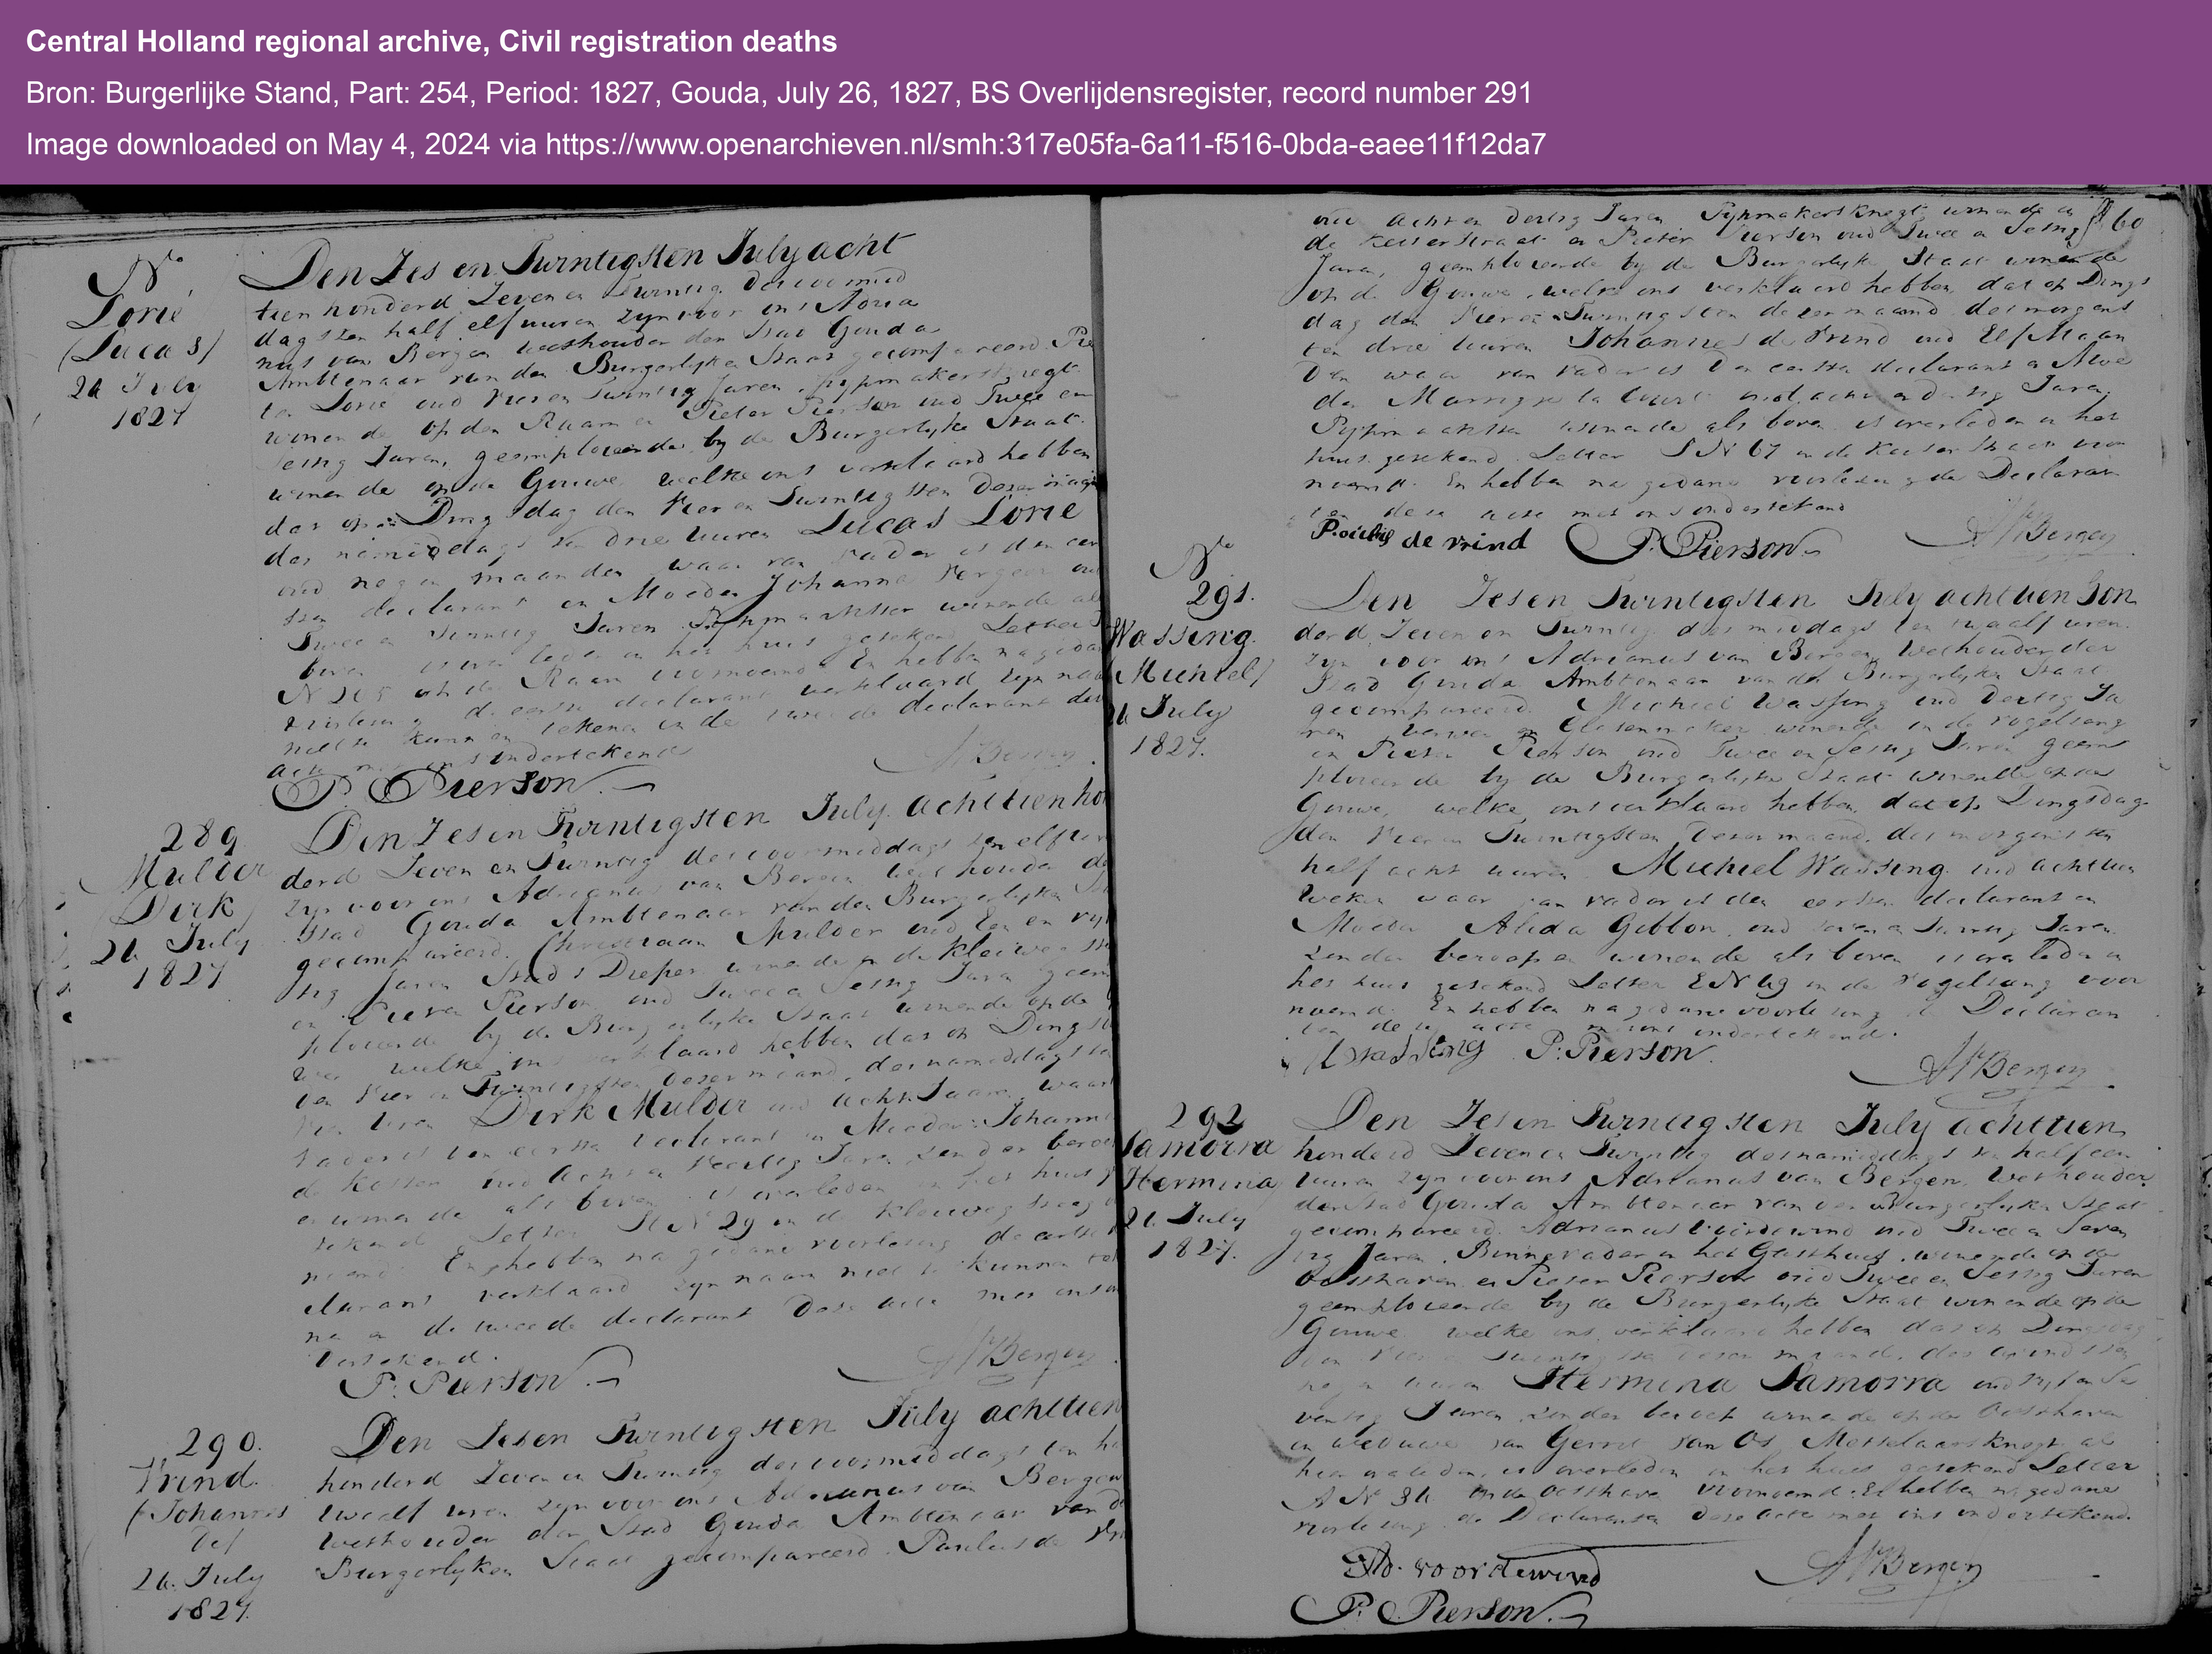 Central Holland regional archive, Civil registration deaths
Bron: Burgerlijke Stand, Part: 254, Period: 1827, Gouda, July 26, 1827, BS Overlijdensregister, record number 291
Image downloaded on May 4, 2024 via https://www.openarchieven.nl/smh:317e05fa-6a11-f516-0bda-eaee11f12da7
No
Lorié
(Lucas)
July
1827
Den Zes en Twintigsten July acht
tien honderd Zeven en Twintig des voormid
dags ten half elf uuren zyn voor ons Adria
nus van Bergen Wethouder der Stad Gouda
Ambtenaar van den Burgerlyken Staat gecompareerd Pie
ter Lorié oud Vier en Twintig Jaren pypmakersknegt
wonende op den Raam en Pieter Pierson oud Twee en
Sestig Jaren, geemploieerde by de Burgerlyke Staat
wonende op de Gouwe welke ons verklaard hebben
dat op Dingsdag den Vier en Twintigsten Dezer
des namiddags ten drie uuren Lucas Lorié
oud negen maanden waar van Vader is den eer
sten declarant en Moeder Johanna
Twee en Twintig Jaren Pypmaakster wonende als
boven is overleden in het huis getekend Letter
N op de Raam voornoemd En hebben na gedane
voorlesing de eerste declarant verklaard zyn naam
niet te kunnen tekenen en de tweede declarant deze
acte met ons ondertekend
P. Pierson
AvBergen
289
Mulder
(Dirk)
26 July
1827
Den Zes en Twintigsten July achttien hon
derd Zeven en Twintig des voormiddags ten elf uren
zyn voor ons Adrianus van Bergen Wethouder der
Stad Gouda Ambtenaar van den Burgerlyken
gecompareerd Christiaan Mulder oud Een en
tig Jaren Stads Dieper wonende in de Kleiweg
en Pieter Pierson oud Twee en Sestig Jaren geem
ploieerde by de Burgerlyke Staat wonende op de
welke ons verklaard hebben dat op Dingsdag
den Vier en Twintigsten Dezer maand, des namiddags ten
uren Dirk Mulder oud acht Jaren, waar
Vader is den eersten declarant en Moeder Johanna
de Koster oud Acht en Veertig Jaren zonder beroep
en wonende als boven is overleden in het huis
tekend Letter No 29 in de Kleiweg
noemd En hebben na gedane voorlesing de eerste
clarant verklaard zyn naam niet te kunnen
en de tweede declarant Deze acte met ons on
dertekend.
P. Pierson
AvBergen
290.
Vrind
(Johannes
de)
26. July
1827.
Den Zes en Twintigsten July achttien
honderd Zeven en Twintig des voormiddags ten
twaalf uren zyn voor ons Adrianus van Bergen
Wethouder der Stad Gouda Ambtenaar van de
Burgerlyken Staat gecompareerd Paulus de
60
oud acht en dertig Jaren Pypmakersknegt wonende in
de Keiserstraat en Pieter Pierson oud Twee en Sestig
Jaren, geemploieerde by de Burgerlyke Staat wonende
op de Gouwe, welke ons verklaard hebben, dat op Dings
dag den Vier en Twintigsten dezer maand des morgens
ten drie uuren Johannes de Vrind oud Elf Maan
den waar van Vader is Den eersten declarant en Moe
der oud acht en dertig Jaren
Pypmaakster wonende als boven is overleden in het
huis getekend Letter No 67 in de Keiserstraat voor
noemd. En hebben na gedane voorlesing de Declaran
ten deze acte met ons ondertekend
de vrind P. Pierson
AvBergen
No
291.
Wassing
(Michiel)
26 July
1827.
Den Zes en Twintigsten July achttien hon
derd Zeven en Twintig des middags ten twaalf uren
zyn voor ons Adrianus van Bergen Wethouder der
Stad Gouda Ambtenaar van den Burgerlyken Staat
gecompareerd Michiel Wassing oud Dertig Ja
ren Verwer en Glasenmaker wonende in de Vogelsang
en Pieter Pierson oud Twee en Sestig Jaren geem
ploieerde by de Burgerlyke Staat wonende op de
Gouwe, welke ons verklaard hebben, dat op Dingsdag
den Vier en Twintigsten Dezer maand, des morgens ten
half acht uuren Michiel Wassing oud achttien
Weken waar van Vader is den eersten declarant en
Moeder Alida Gibbon, oud Zeven en Twintig Jaren
zonder beroep en wonende als boven is overleden in
het huis getekend Letter E No 69 in de Vogelsang voor
noemd. En hebben na gedane voorlesing de Declaran
ten deze acte met ons ondertekend.
Wassing P. Pierson
AvBergen
292
Samorra
Hermina
26 July
1827.
Den Zes en Twintigsten July achttien
honderd Zeven en Twintig des namiddags ten half een
uuren zyn voor ons Adrianus van Bergen, Wethouder
der Stad Gouda Ambtenaar van den Burgerlyken Staat
gecompareerd Adrianus Voordewind oud Twee en Seven
tig Jaren, Binnevader in het Gasthuis, wonende op de
Oosthaven en Pieter Pierson oud Twee en Sestig Jaren
geemploieerde by de Burgerlyke Staat wonende op de
Gouwe welke ons verklaard hebben dat op Dingsdag
den Vier en Twintigsten dezer maand, des avonds ten
negen uuren Hermina Samorra oud Vyf en Se
ventig Jaren zonder beroep wonende op de Oosthaven
en weduwe van Gerrit van Os, Metselaarsknegt al
hier overleden, is overleden in het huis getekend Letter
A No op de Oosthaven voornoemd. En hebben na gedane
voorlesing de Declaranten Deze acte met ons ondertekend.
Ad. voordewind
AvBergen
P. Pierson